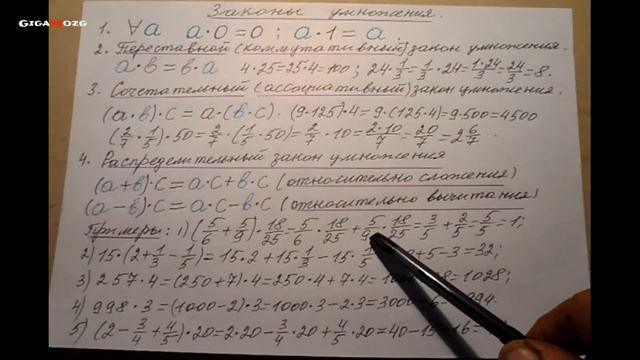 GIGAMOZG
Законы умножения.
1. ∀a a·0=0; a·1=a.
2. Переставной (коммутативный) закон умножения.
a·b=b·a 4·25=25·4=100; 24·1/3=1/3·24=1·24/3=24/3=8.
3. Сочетательный (ассоциативный) закон умножения.
(a·b)·c=a·(b·c). (9·125)·4=9·(125·4)=9·500=4500
(2/7·1/5)·50=2/7·(1/5·50)=2/7·10=2·10/7=20/7=2 6/7.
4. Распределительный закон умножения
(a+b)·c=a·c+b·c (относительно сложения)
(a-b)·c=a·c-b·c (относительно вычитания)
Примеры: 1) (5/6+5/9)·18/25=5/6·18/25+5/9·18/25=3/5+2/5=5/5=1;
2) 15·(2+1/3-1/5)=15·2+15·1/3-15·1/5 +5-3=32;
3) 257·4=(250+7)·4=250·4+7·4= 28=1028;
4) 998·3=(1000-2)·3=1000·3-2·3=3000-6= 994.
5) (2-3/4+4/5)·20=2·20-3/4·20+4/5·20=40-15 16=